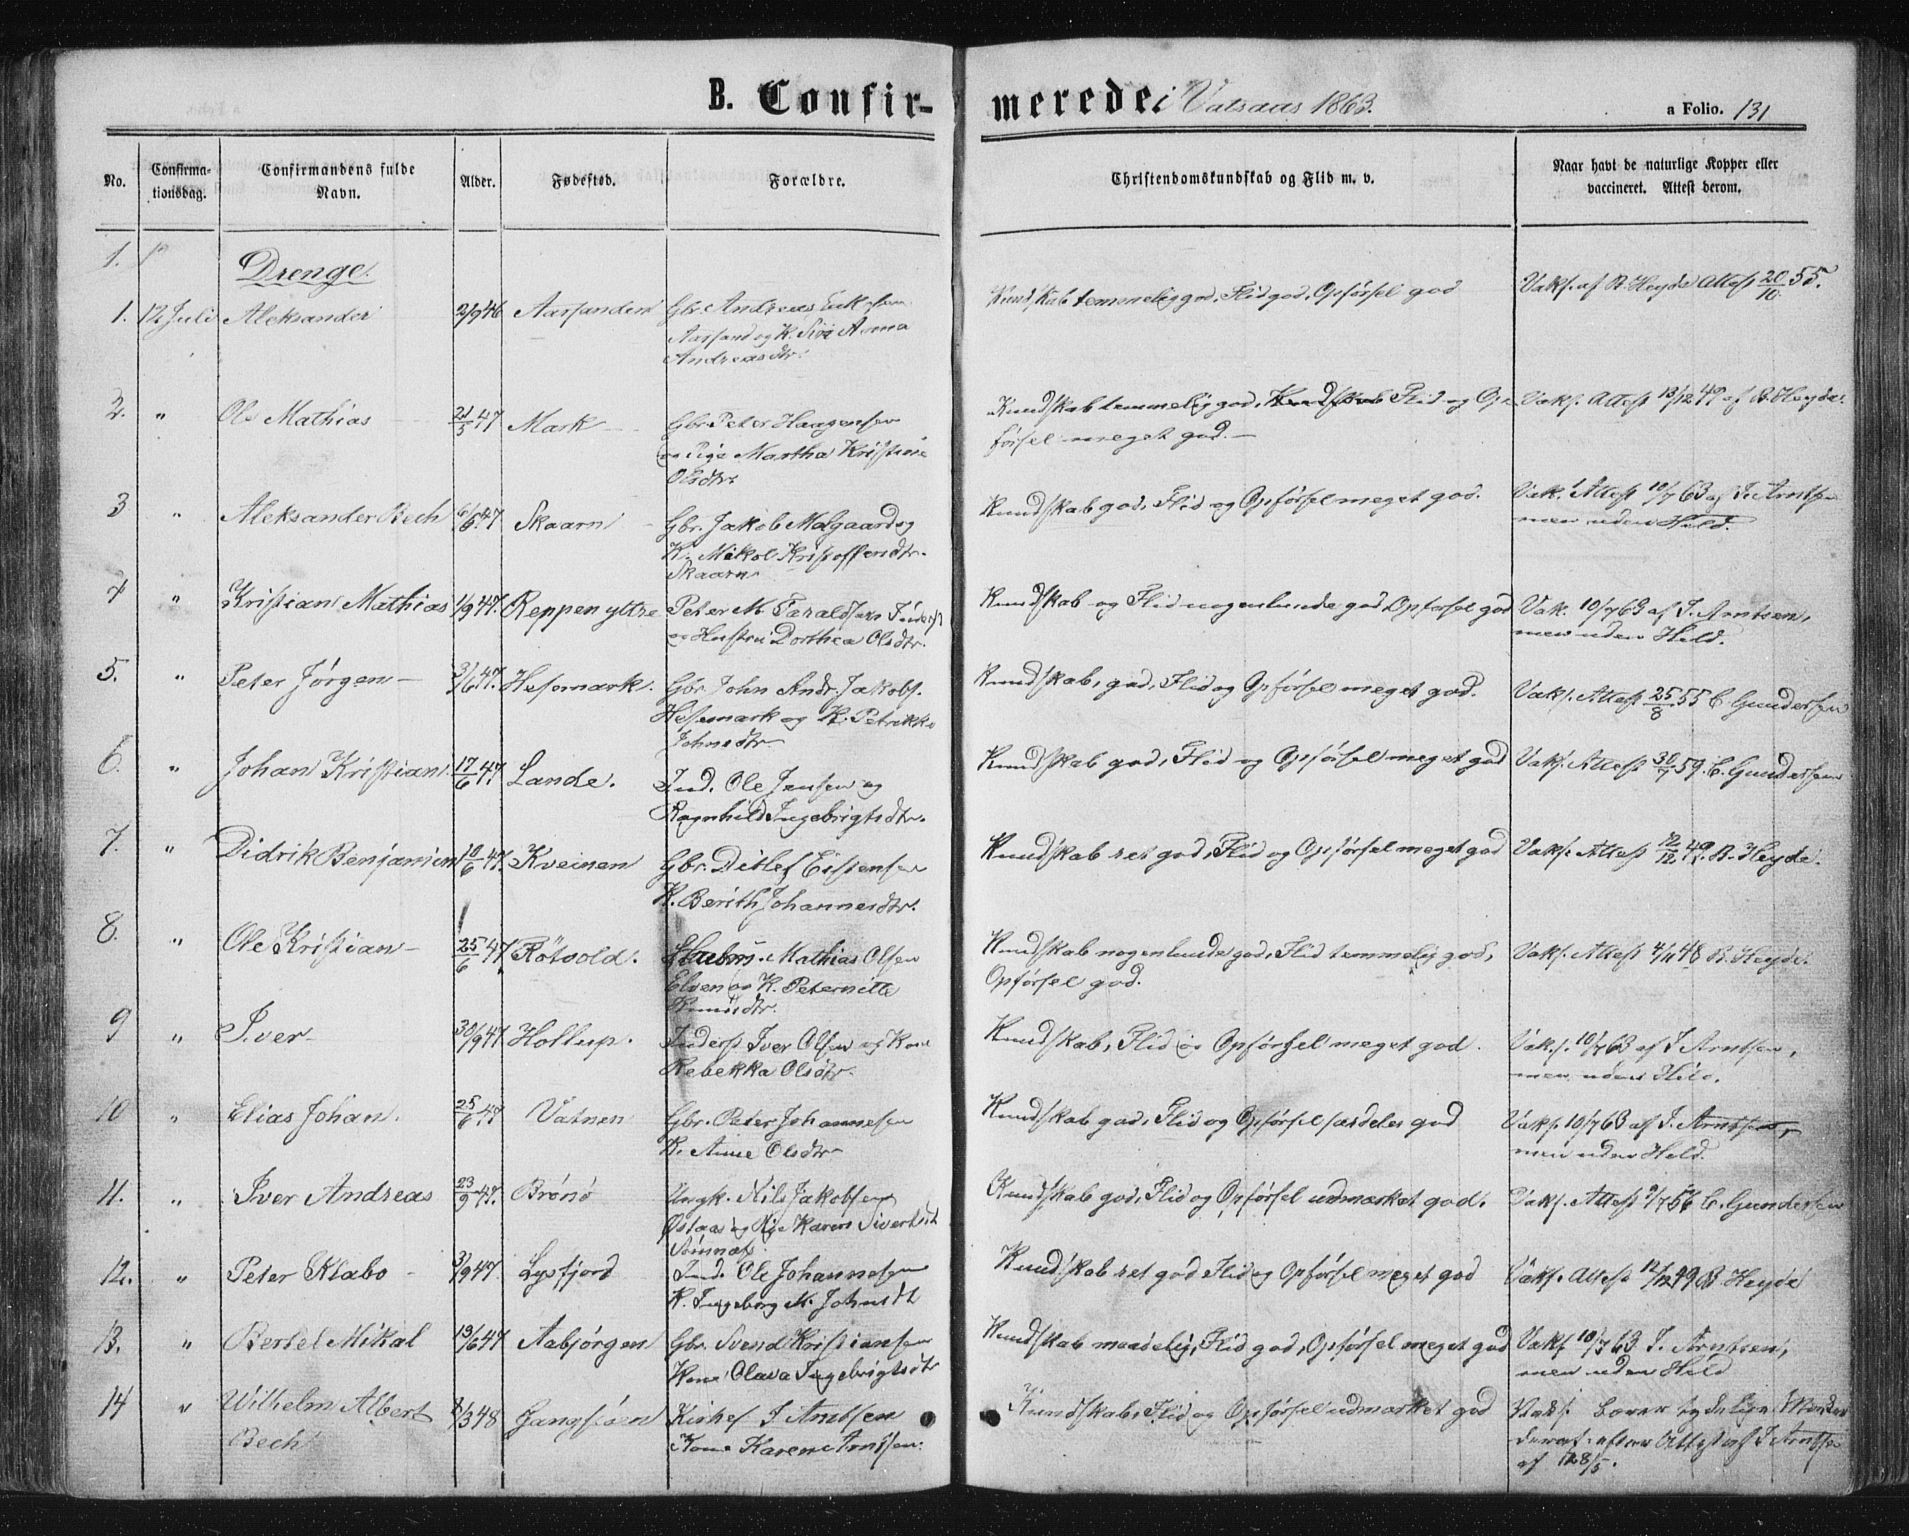 B. Confir-
merede i Vatsaas 1863.
a Folio. 131
No.
Confirma-
tionsdag.
Confirmandens fulde
Navn.
Alder.
Fødested.
Forældre.
Christendomskundskab og Flid m. v.
Naar havt de naturlige Kopper eller
vaccineret. Attest derom.
1.
Drenge.
1. 12 Juli Aleksander 2/9 46 Aarsanden Gbr. Andreas Eriksen Kundskab temmelig god, Flid god, Opførsel god Vaks. af B. Heyde Attest 20/10 55.
Aarsand og K. Anna
Andreasdtr.
2. " Ole Mathias 21/5 47 Mark Gbr. Peter Haagensen Kundskab temmelig god, Kundskab Flid og Op- Vaks. Attest 13/12 49 af B. Heyde
og Pige Martha Kristine førsel meget god.
Olsdtr.
3 " Aleksander Bech 6/6 47 Skaarn Gbr. Jakob Molgaard og Kundskab god, Flid og Opførsel meget god. Vak. Attest 10/7 63 af I. Arntsen
K. Mikol Kristoffersdtr. men uden Held.
Skaarn
4 " Kristian Mathias 1/9 47. Reppen yttre Peter M. Taraldsen Inderst Kundskab og Flid nogenlunde god, Opførsel god Vak. 10/7 63 af I. Arntsen,
og Hustru Dorthea Olsdtr. men uden Held.
5. " Peter Jørgen 3/6 47. Hesmark. Gbr. John Andr. Jakobs. Kundskab, god, Flid og Opførsel meget god. Vaks. Attest 25/8 55 C Gundersen
Hesmark og K. Petrikke
Johnsdtr.
6. " Johan Kristian. 17/6 47 Lande. Ind. Ole Jensen og Kundskab god, Flid og Opførsel meget god Vaks. Attest 30/7 59. C. Gundersen
Ragnhild Ingebrigtsdtr.
7. " Didrik Benjamin 10/6 47. Kveinen Gbr. Ditlef Eistensen Kundskab ret god, Flid og Opførsel meget god Vaks. Attest 12/12 49. B. Heyde.
K. Berith Johannesdtr.
8. " Ole Kristian 25/6 47 Røtvold. Mathias Olsen Kundskab nogenlunde god, Flid temmelig god, Vaks. Attest 4/11 48 B. Heyde.
Elven og K. Peternille Opførsel god.
Knudsdtr.
9 " Iver 30/9 47 Holtup. Inderst Iver Olsen og Kone Kundskab, Flid og Opførsel meget god. Vaks. 10/7 63 af I Arntsen,
Rebekka Olsdtr. men uden Held.
10 " Elias Johan. 25/6 47 Vatnen Gbr. Peter Johannesen Kundskab god, Flid og Opførsel særdeles god Vaks. 10/7 63 af I. Arntsen,
K. Anne Olsdtr men uden Held.
11. " Iver Andreas 23/9 47. Brønø Ungk. Nils Jakobsen Kundskab god, Flid og Opførsel udmærket god. Vaks. Attest 9/7 56 C. Gundersen
og Pige Karen Sivertsdt
12. " Peter Klabo 3/9 47 Lysfjord Ind. Ole Johannesen Kundskab ret god Flid og Opførsel meget god Vaks. Attest 12/12 49 B. Heyde
K. Ingeborg M. Johnsdt
13. " Bertel Mikal 13/6 47 Aabjørgen Gbr. Svend Kristiansen Kundskab maadelig, Flid god, Opførsel meget god Vaks 10/7 63 I. Arntsen,
Kone Olava Ingebrigtsdtr men uden Held
14 " Wilhelm Albert 8/3 48 Gangsøen Kirkes. I Arntsen Kundskab, Flid og Opførsel udmærket god Vaks. Bærer tydelige
Bech Kone Karen Arntsen. deraf efter Attest af I Arntsen
af 28/5.